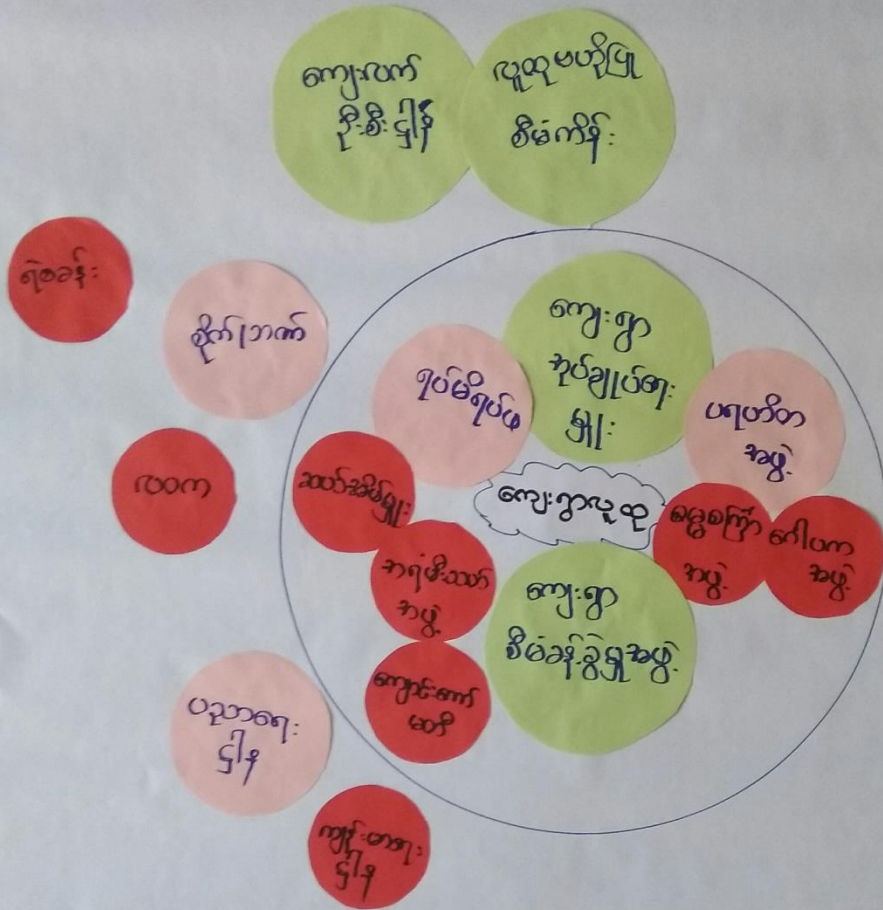 ကျေးလက်
ဦးစီးဌါန
လူထုဗဟိုပြု
စီမံကိန်း
ရဲစခန်း
စိုက်/ဘဏ်
ကျေးရွာ
အုပ်ချုပ်ရေး
မှူး
ရပ်မိရပ်ဖ
ပရဟိတ
အဖွဲ့
လဝက
ဆယ်အိမ်မှူး
ကျေးရွာလူထု
ဓမ္မစကြာ
အဖွဲ့
ဂေါပက
အဖွဲ့
အရံမီးသတ်
အဖွဲ့
ကျေးရွာ
စီမံခန့်ခွဲမှုအဖွဲ့
ကျောင်းကော်
မတီ
ပညာရေး
ဌါန
ကျန်းမာရေး
ဌါန